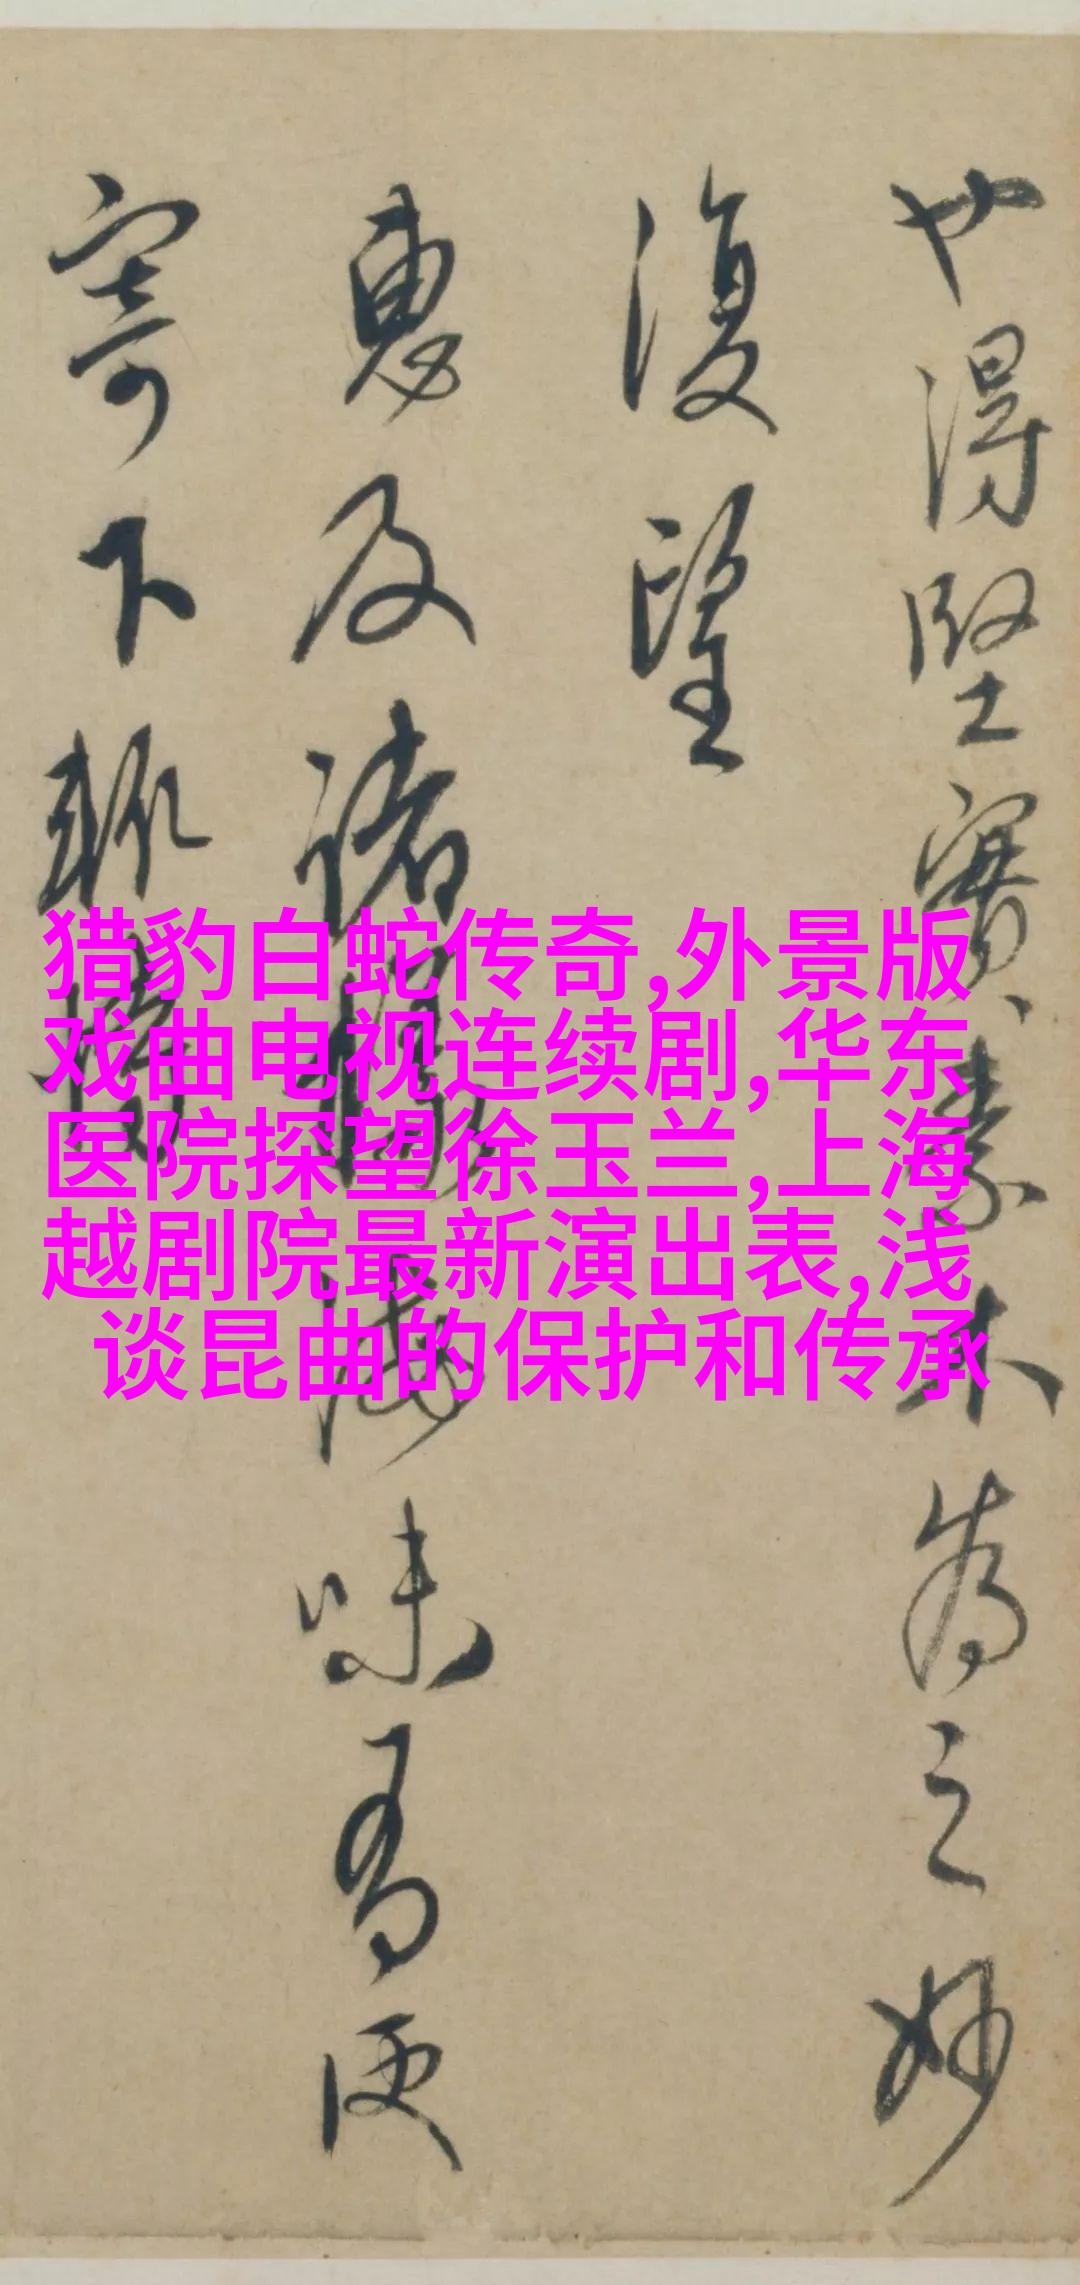 也得坚實素木為之妙
復望
惠及诸
海味有便
寄下輒
猎豹白蛇传奇,外景版
戏曲电视连续剧,华东
医院探望徐玉兰,上海
越剧院最新演出表,浅
谈昆曲的保护和传承